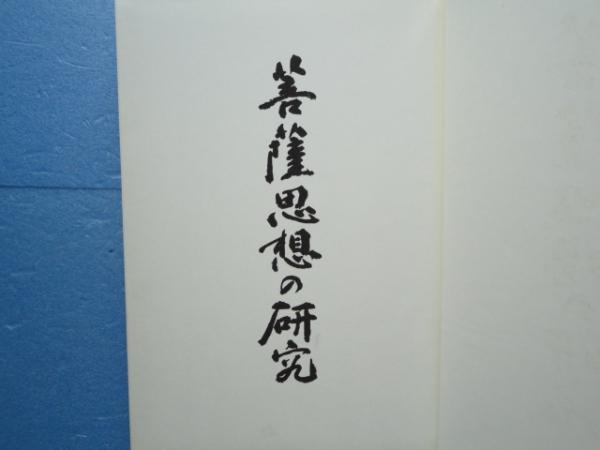 菩薩思想の研究